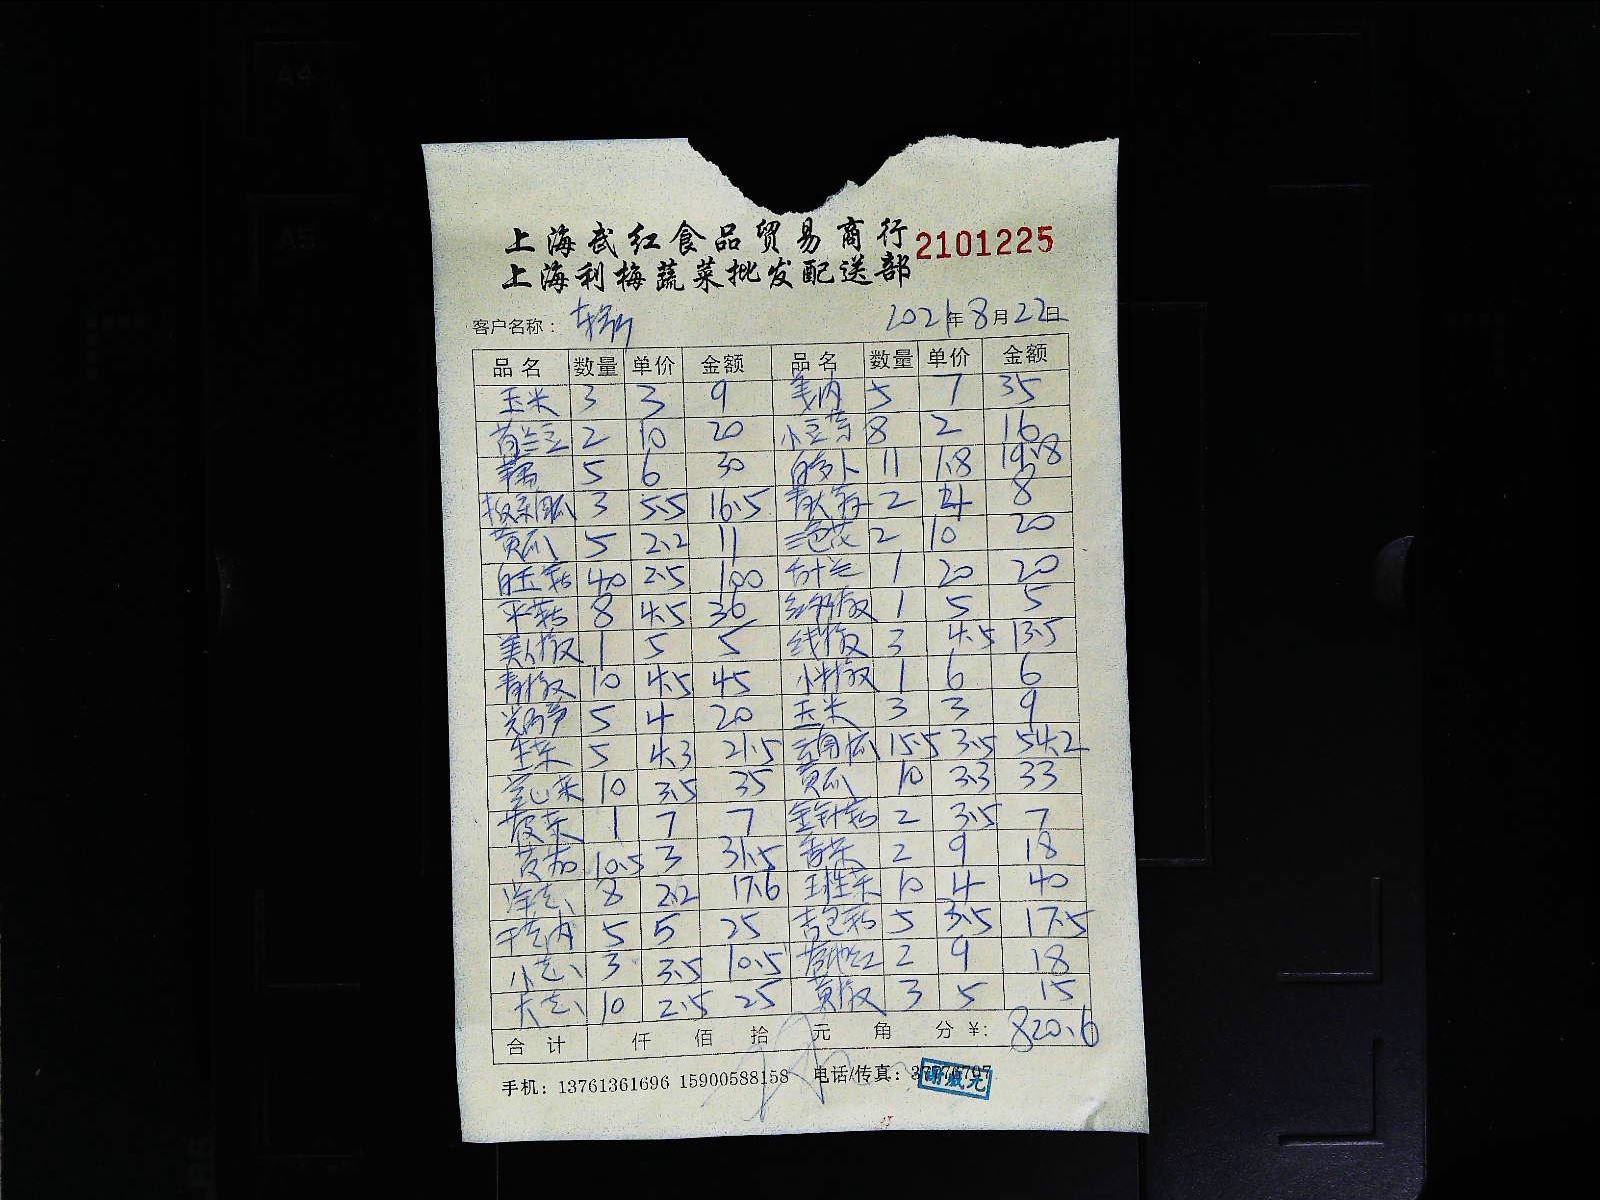 上海武红食品贸易商行 2101225
上海利梅蔬菜批发配送部
客户名称： 2021年8月22日
品名 数量 单价 金额 品名 数量 单价 金额
玉米 3 3 9 姜肉 5 7 35
荷兰豆 2 10 20 小豆芽 8 2 16
5 6 30 白萝卜 11 1.8 19.8
3 5.5 16.5 2 4 8
黄瓜 5 2.2 11 2 10 20
白玉菇 40 2.5 100 1 20 20
平菇 8 4.5 36 1 5 5
美人椒 1 5 5 线椒 3 4.5 13.5
青椒 10 4.5 45 小米椒 1 6 6
5 4 20 玉米 3 3 9
生菜 5 4.3 21.5 15.5 3.5 54.2
空心菜 10 3.5 35 黄瓜 10 3.3 33
菠菜 1 7 7 金针菇 2 3.5 7
黄茄 10.5 3 31.5 香菜 2 9 18
洋葱 8 2.2 17.6 10 4 40
5 5 25 3.5 17.5
小葱 3 3.5 10.5 2 9 18
大葱 10 2.5 25 黄椒 3 5 15
合计 仟 佰 拾 元 角 分 ¥: 820.6
手机：13761361696 15900588158 电话/传真：37776707